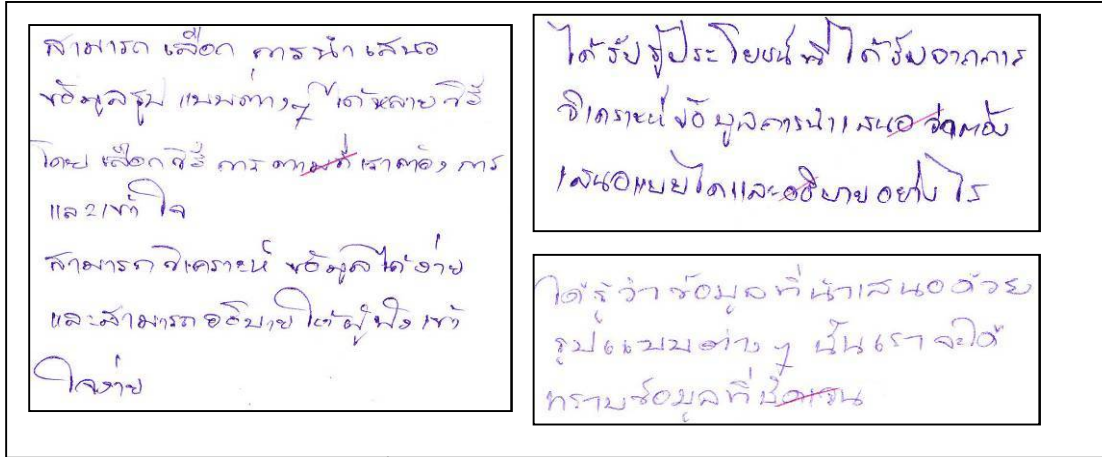 สามารถ เลือก การนำเสนอ
ข้อมูลรูป แบบต่างๆ ได้หลายวิธี
โดย เลือกวิธี การ ตามที่ เราต้อง การ
และเข้า ใจ
สามารถ วิเคราะห์ ข้อมูลได้ง่าย
และสามารถ อธิบาย ให้ผู้ฟัง เข้า
ใจง่าย
ได้รับรู้ประโยชน์ที่ ได้รับจากการ
วิเคราะห์ ข้อมูลการนำเสนอ ว่าต้อง
เสนอแบบใดและอธิบายอย่างไร
ได้รู้ว่าข้อมูลที่นำเสนอด้วย
รูปแบบต่าง ๆ นั้นเราจะได้
ทราบข้อมูลที่ชัดเจน